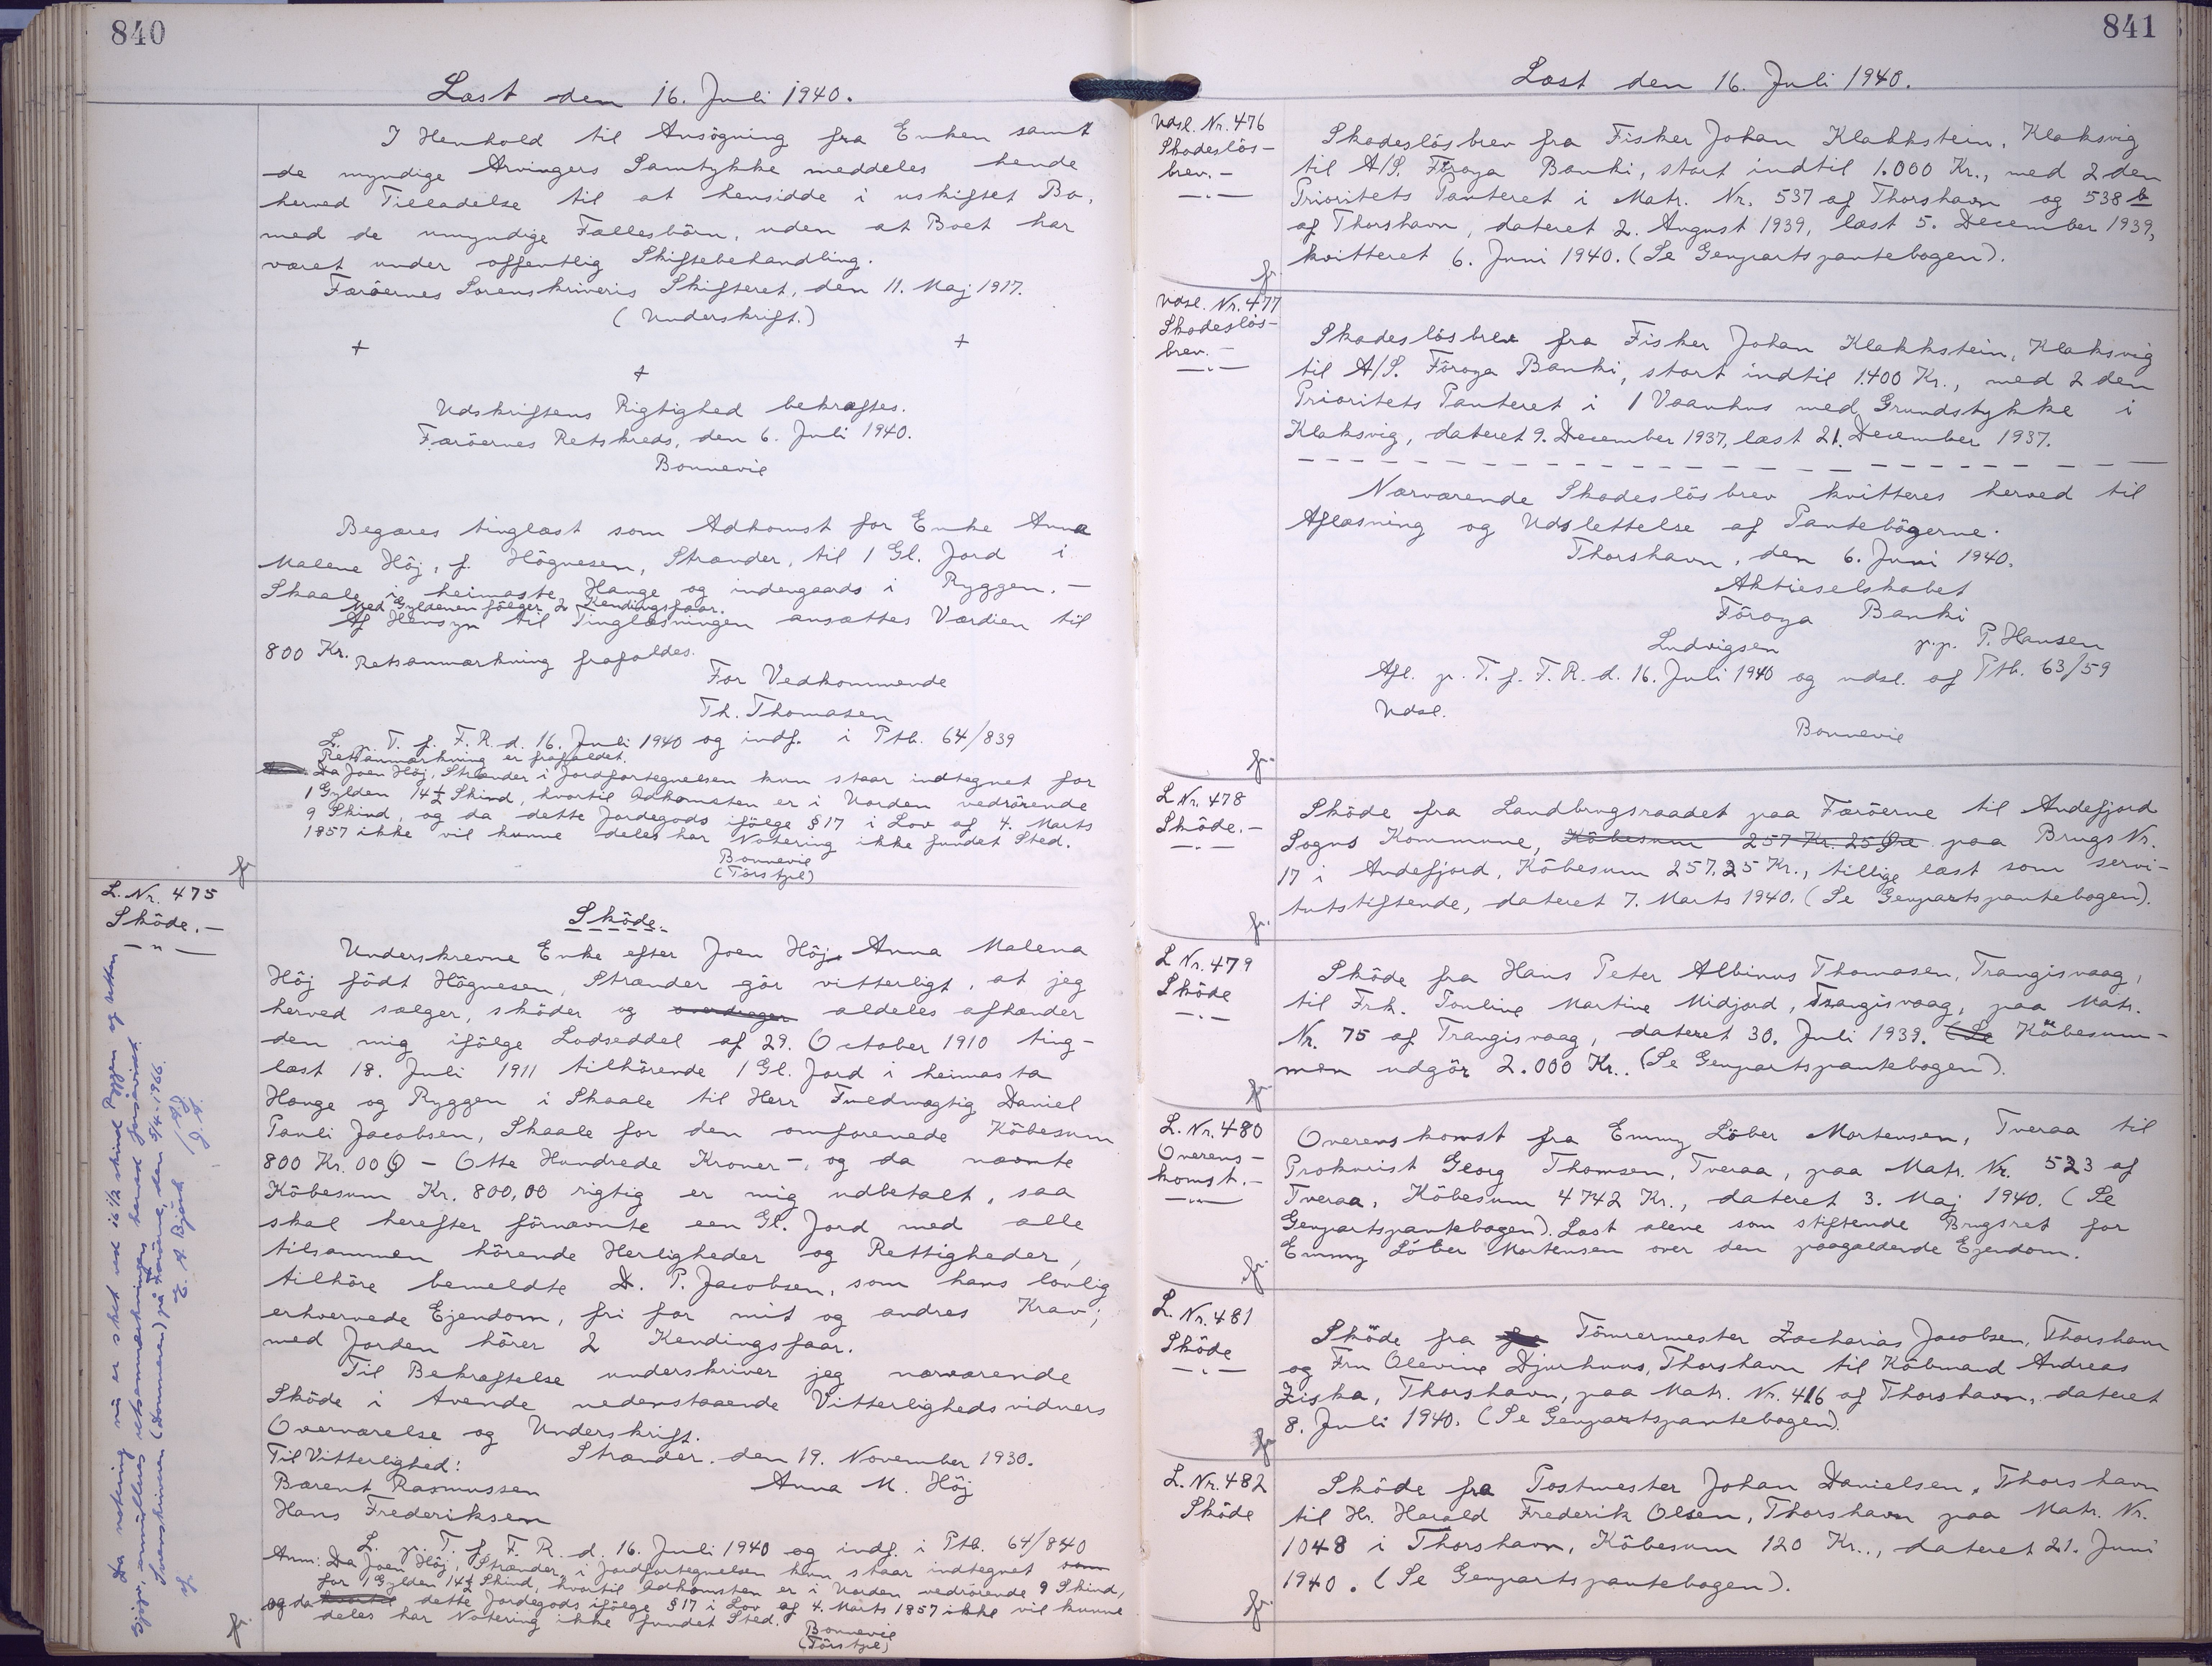 840
Læst den 16. Juli 1940.
I Henhold til Ansögning fra Enken samt
de myndige Arvingers Samtykke meddeles hende
herved Tilladelse til at hensidde i uskiftet Bo,
med de umyndige Fællesbörn, uden at Boet har
været under offentlig Skiftebehandling.
Færöernes Sorenskriveris Skifteret, den 11. Maj 1917.
(Underskrift.)
+ +
+
Udskriftens Rigtighed bekræftes.
Færöernes Retskreds, den 6. Juli 1940.
Bonnevie
Begæres tinglæst som Adkomst for Enke Anna
Malene Höj, f. Högnesen, Strænder, til 1 Gl. Jord i
Skaale i heimaste Hauge og indengaards i Ryggen. —
Med Gyldenen fölger 2 Kendingsfaar.
Af Hensyn til Tinglæsningen ansættes Værdien til
800 Kr.
Retsanmærkning frafaldes.
For Vedkommende
Th. Thomasen
L. p. T. f. F. R. d. 16. Juli 1940 og indf. i Ptb. 64/839
Retsanmærkning er frafaldet.
Da Joen Höj, Strænder i Jordfortegnelsen kun staar indtegnet for
1 Gylden 14½ Skind, hvortil Adkomsten er i Orden vedrörende
9 Skind, og da dette Jordegods ifölge § 17 i Lov af 4. Marts
1857 ikke vil kunne deles har Notering ikke fundet Sted.
Bonnevie
(Törs tpl)
fr
L. Nr. 475
Sköde. —
— " —
Sköde.
Underskrevne Enke efter Joen Höj, Anna Malena
Höj födt Högnesen, Strænder gör vitterligt, at jeg
herved sælger, sköder og overdrager aldeles afhænder
den mig ifölge Lodseddel af 29. October 1910 ting-
læst 18. Juli 1911 tilhörende 1 Gl. Jord i heimasta
Hauge og Ryggen i Skaale til Herr Fuldmægtig Daniel
Pauli Jacobsen, Skaale for den omforenede Köbesum
800 Kr. 00 Ø — Otte Hundrede Kroner —, og da nævnte
Köbesum Kr. 800,00 rigtig er mig udbetalt, saa
skal herefter förnævnte een Gl. Jord med alle
tilsammen hörende Herligheder og Rettigheder,
tilhöre bemeldte D. P. Jacobsen, som hans lovlig
erhvervede Ejendom, fri for mit og andres Krav;
med Jorden hörer 2 Kendingsfaar.
Til Bekræftelse underskriver jeg nærværende
Sköde i tvende nedenstaaende Vitterlighedsvidners
Overværelse og Underskrift.
Strænder, den 19. November 1930.
Til Vitterlighed:
Bærent Rasmussen
Anna M. Höj
Hans Frederiksen
L. p. T. f. F. R. d. 16. Juli 1940 og indf. i Ptb. 64/840
Anm: Da Joen Höj, Strænder, i Jordfortegnelsen kun staar indtegnet som
for 1 Gylden 14½ Skind, hvortil Adkomsten er i Orden vedrörende 9 Skind,
og da hvortil dette Jordegods ifölge § 17 i Lov af 4. Marts 1857 ikke vil kunne
deles har Notering ikke fundet Sted.
Bonnevie
(Törs tpl)
fr.
Da notering nu er sket ved 16 1/2 skind Ryggen og
retsanmærkningen herved
Sorenskriveren (Dommeren) på Færöerne, den 5/4-1966.
E. A. Björk
841
Læst den 16. Juli 1940.
Udsl. Nr. 476
Skadeslös-
brev. —
— . —
Skadeslösbrev fra Fisker Johan Klakkstein, Klaksvig
til A/S. Föroya Banki, stort indtil 1.000 Kr., med 2den
Prioritets Panteret i Matr. Nr. 537 af Thorshavn og 538 b
af Thorshavn, dateret 2. August 1939, læst 5. December 1939,
kvitteret 6. Juni 1940. (Se Genpartspantebogen).
fr
Udsl. Nr. 477
Skadeslös-
brev. —
— . —
Skadeslösbrev fra Fisker Johan Klakkstein, Klaksvig
til A/S. Föroya Banki, stort indtil 1400 Kr., med 2den
Prioritets Panteret i 1 Vaanhus med Grundstykke i
Klaksvig, dateret 9. December 1937, læst 21. December 1937.
Nærværende Skadeslösbrev kvitteres herved til
Aflæsning og Udslettelse af Pantebögerne.
Thorshavn, den 6. Juni 1940.
Aktieselskabet
Föroya Banki
Ludvigsen p.p. P. Hansen
Afl. p. T. f. F. R. d. 16. Juli 1940 og udsl. af Ptb. 63/59
Udsl.
Bonnevie
fr.
L Nr. 478
Sköde. —
— . —
Sköde fra Landbrugsraadet paa Færöerne til Andefjord
Sogns Kommune, Köbesum 257 Kr. 25 Øre paa Brugs Nr.
17 i Andefjord, Köbesum 257.25 Kr., tillige læst som servi-
tutstiftende, dateret 7. Marts 1940. (Se Genpartspantebogen).
fr.
L Nr. 479
Sköde
— . —
Sköde fra Hans Peter Albinus Thomasen, Trangisvaag,
til Frk. Pouline Martine Midjord, Trangisvaag, paa Matr.
Nr. 75 af Trangisvaag, dateret 30. Juli 1939. (Se Köbesum-
men udgör 2.000 Kr.. (Se Genpartspantebogen).
fr
L. Nr. 480
Overens-
komst. —
— " —
Overenskomst fra Emmy Löber Mortensen, Tveraa til
Prokurist Georg Thomsen, Tveraa, paa Matr. Nr. 523 af
Tveraa, Köbesum 4742 Kr., dateret 3. Maj 1940. (Se
Genpartspantebogen). Læst alene som stiftende Brugsret for
Emmy Löber Mortensen over den paagældende Ejendom.
fr.
L. Nr. 481
Sköde
— . —
Sköde fra Tömrermester Zacharias Jacobsen, Thorshavn
og Fru Olevine Djurhuus, Thorshavn til Köbmand Andreas
Ziska, Thorshavn, paa Matr. Nr. 416 af Thorshavn, dateret
8. Juli 1940. (Se Genpartspantebogen).
fr
L. Nr. 482
Sköde
Sköde fra Postmester Johan Danielsen, Thorshavn
til Hr. Harald Frederik Olsen, Thorshavn paa Matr. Nr.
1048 i Thorshavn, Köbesum 120 Kr.., dateret 21. Juni
1940. (Se Genpartspantebogen).
fr.